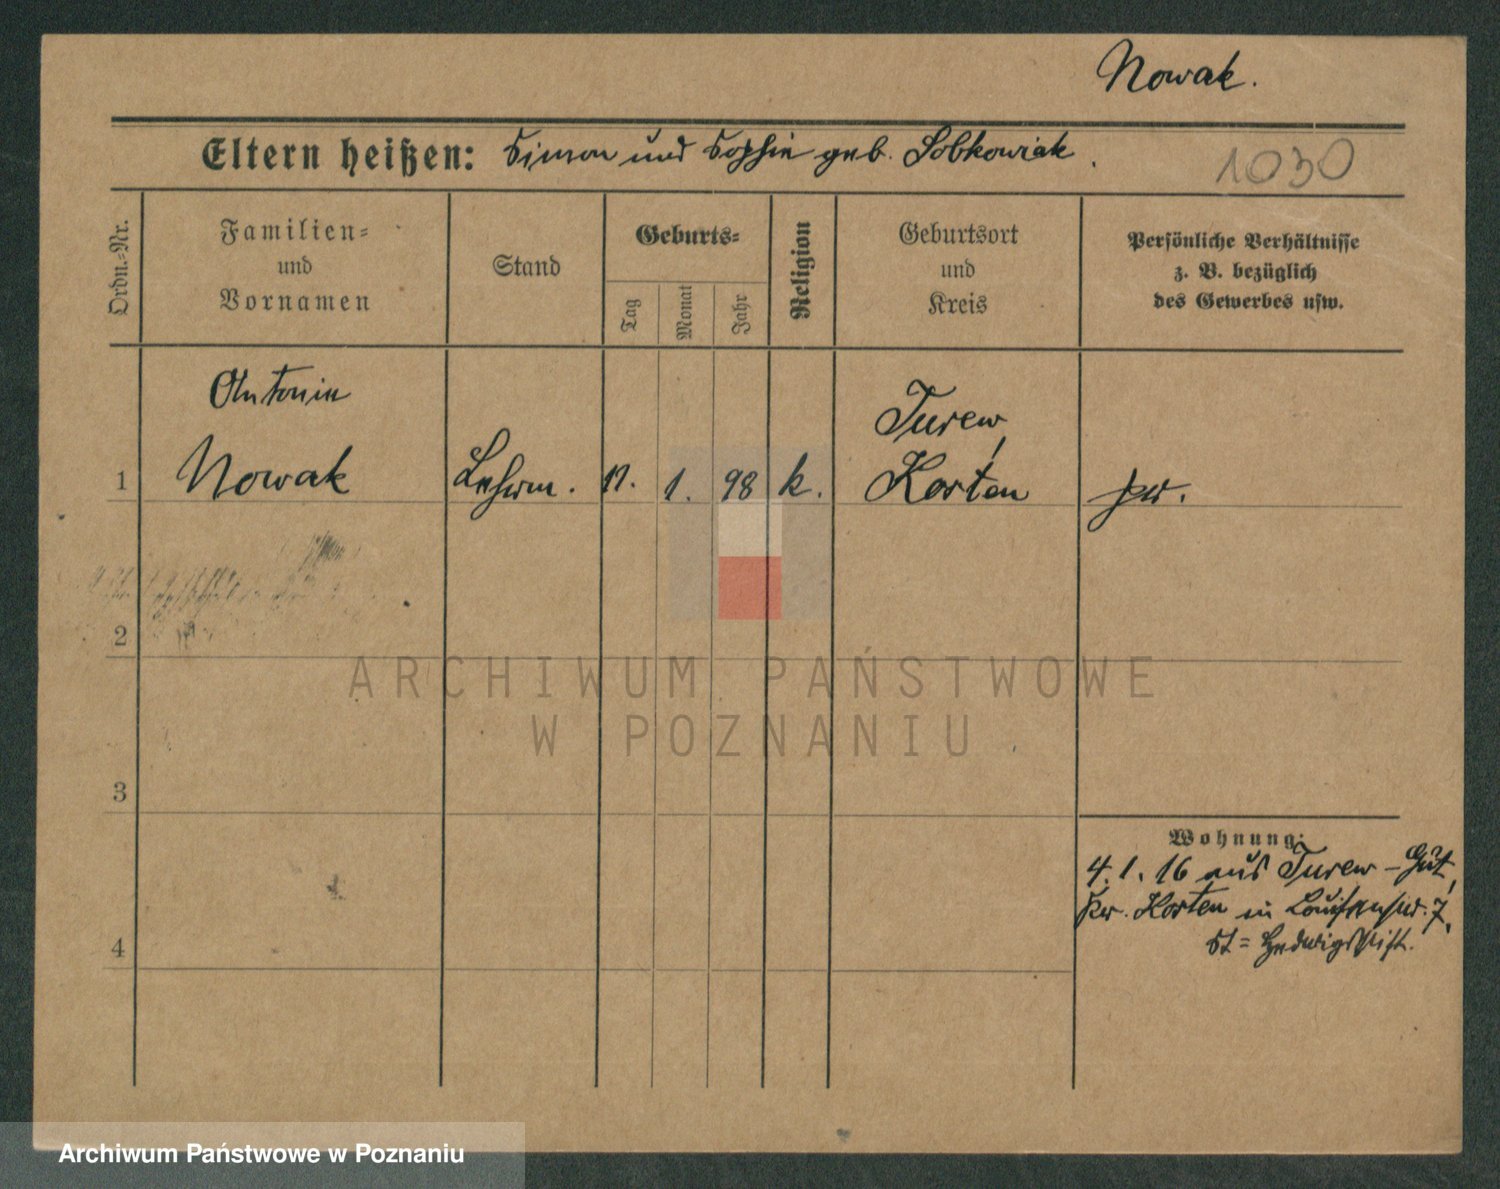 Nowak.
Eltern heißen: Simon und Sophie geb. Sobkowiak.
1030
Ordn.-Nr.
Familien-
und
Vornamen
Stand
Geburts-
Tag
Monat
Jahr
Religion
Geburtsort
und
Kreis
Persönliche Verhältnisse
z. B. bezüglich
des Gewerbes usw.
Antonie
Nowak
Turew,
1
1. 98 k. Kosten
2
ARCHIWUM PAŃSTWOWE
W POZNANIU
3
Wohnung:
4. 1. 16 aus Turew - Gut,
Kr. Kosten in Louisenstr. 7,
St = Hedwigstift.
4
Archiwum Państwowe w Poznaniu